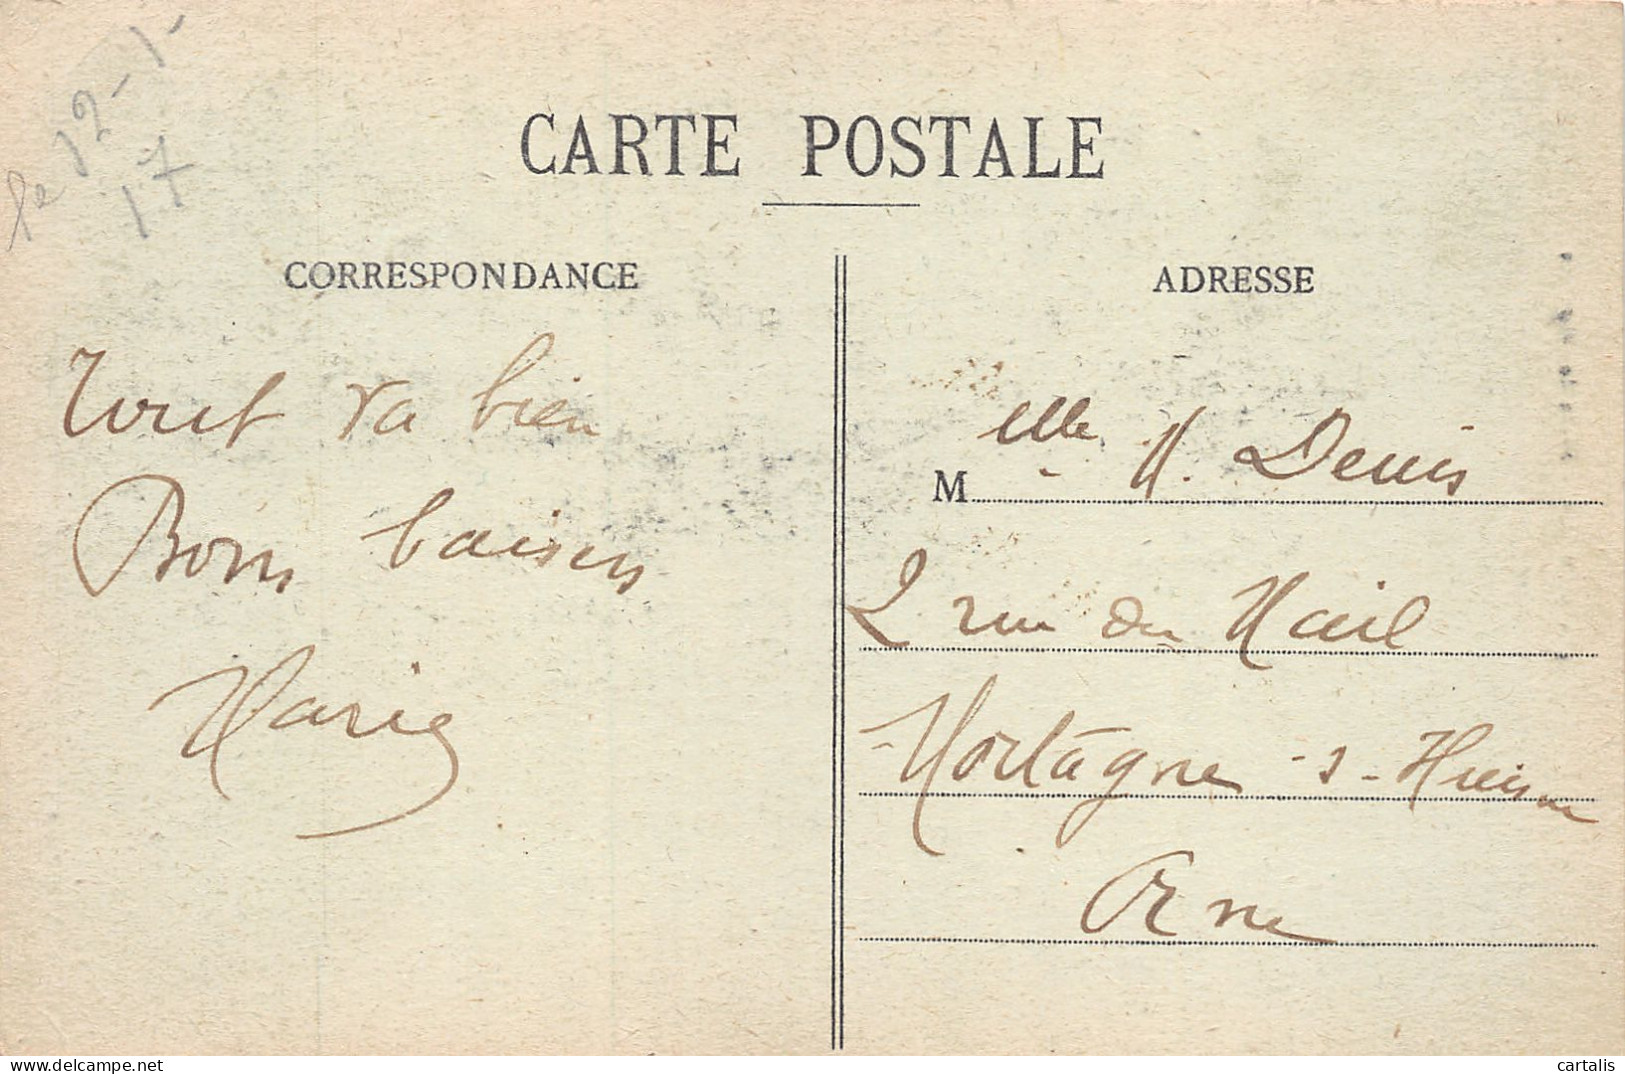 le 12-1-
17
CARTE POSTALE
CORRESPONDANCE
Tout va bien
Bons baisers
Marie
ADRESSE
Mlle M. Denis
2 rue du Mail
Mortagne -s- Huisne
Orne
cartalis